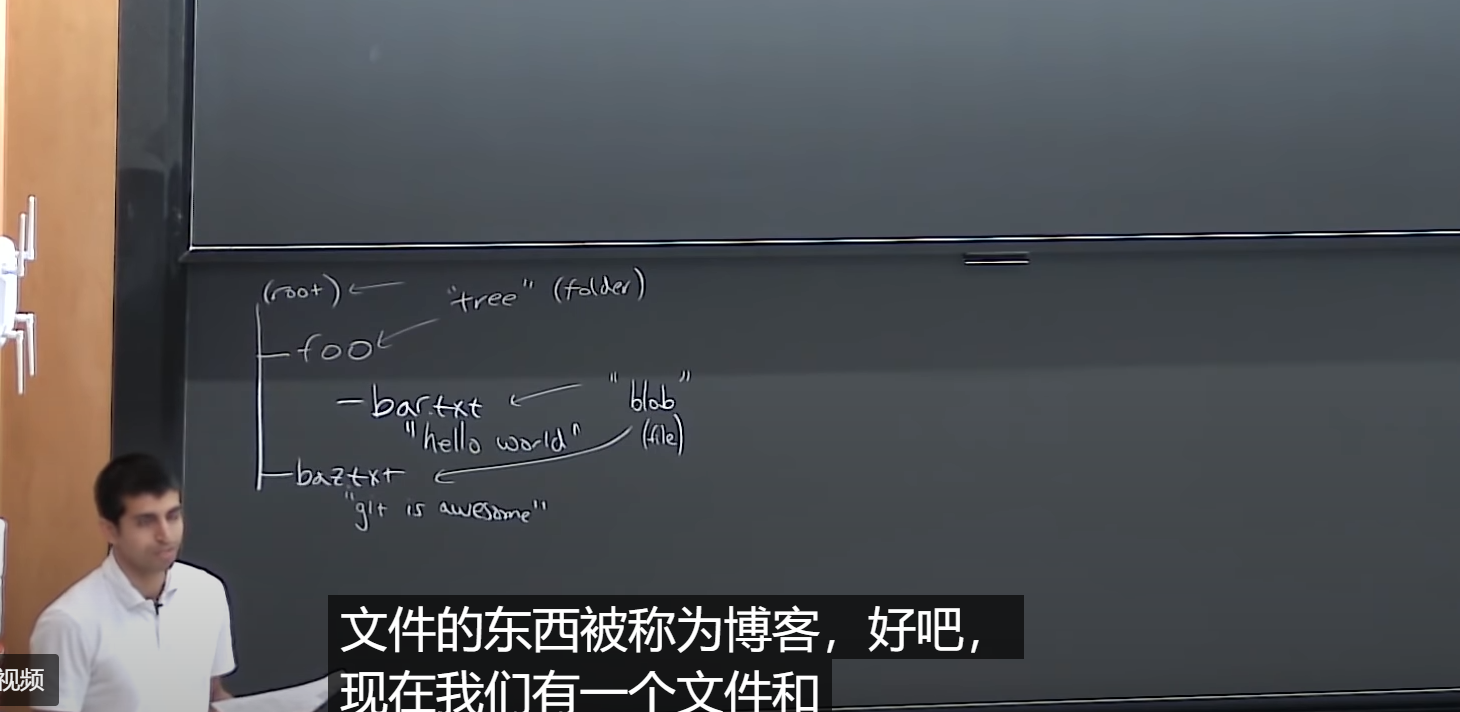 (root)
"tree" (folder)
foo
bar.txt
"blob"
(file)
"hello world"
baz.txt
"git is awesome"
文件的东西被称为博客，好吧，
现在我们有一个文件和
视频